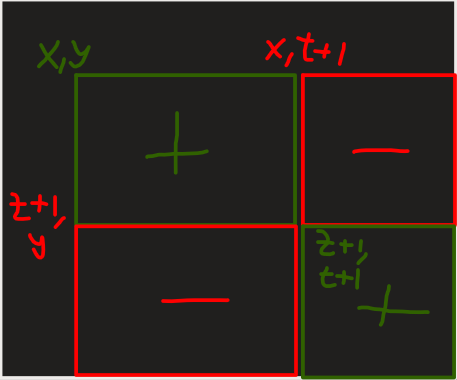 x,y
x,t+1
+
−
z+1,
y
z+1,
t+1
−
+